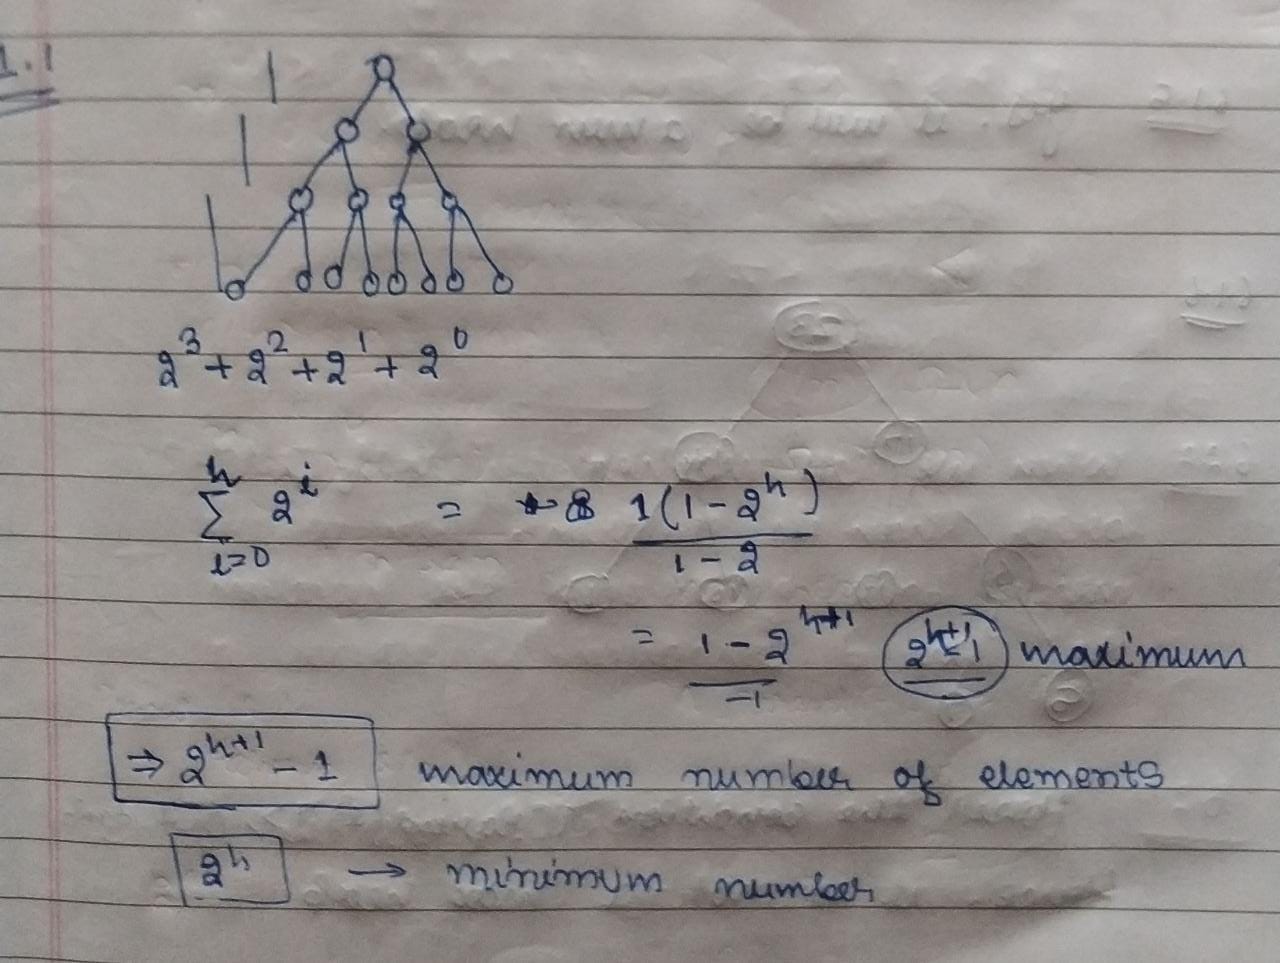 1.1
2^3 + 2^2 + 2^1 + 2^0
h
∑ 2^i = 1(1-2^h)
i=0 1-2
= 1-2^{h+1} 2^{h+1}-1 maximum
-1
⇒ 2^{h+1} - 1 maximum number of elements
2^h → minimum number